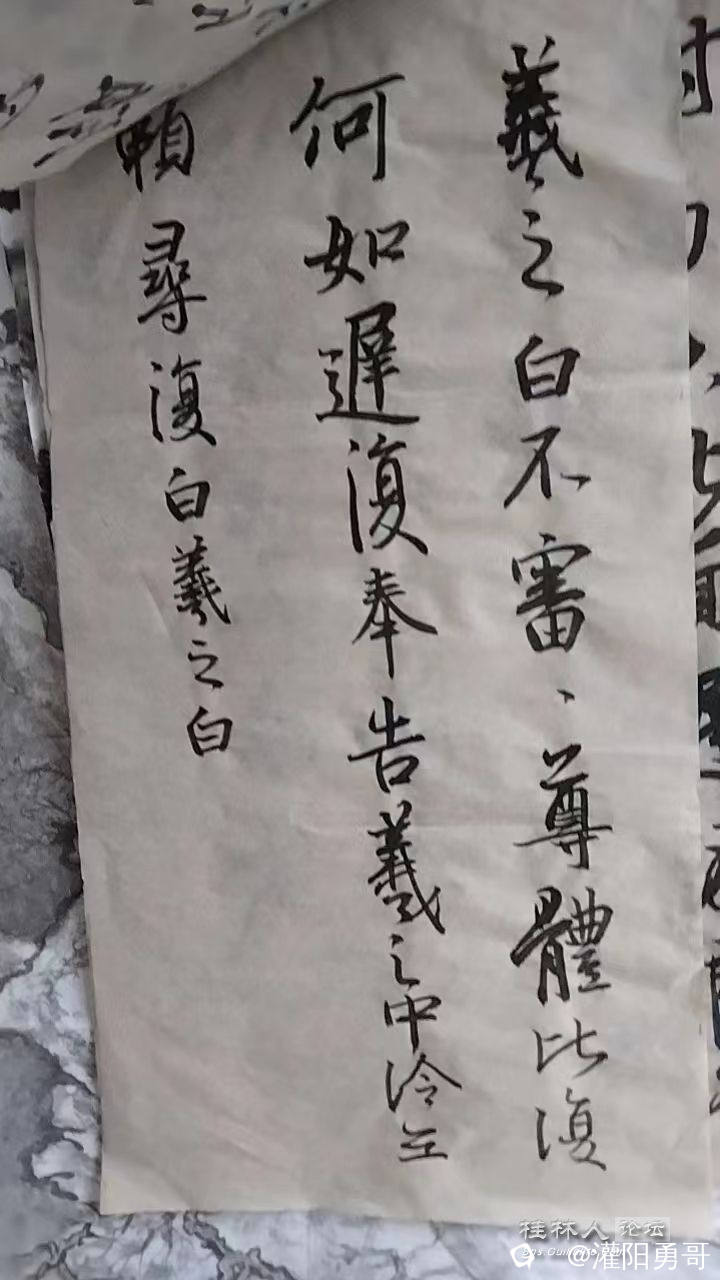 羲之白不審、尊體比復
何如遲復奉告羲之中冷
賴尋復白羲之白
桂林人论坛
@灌阳勇哥